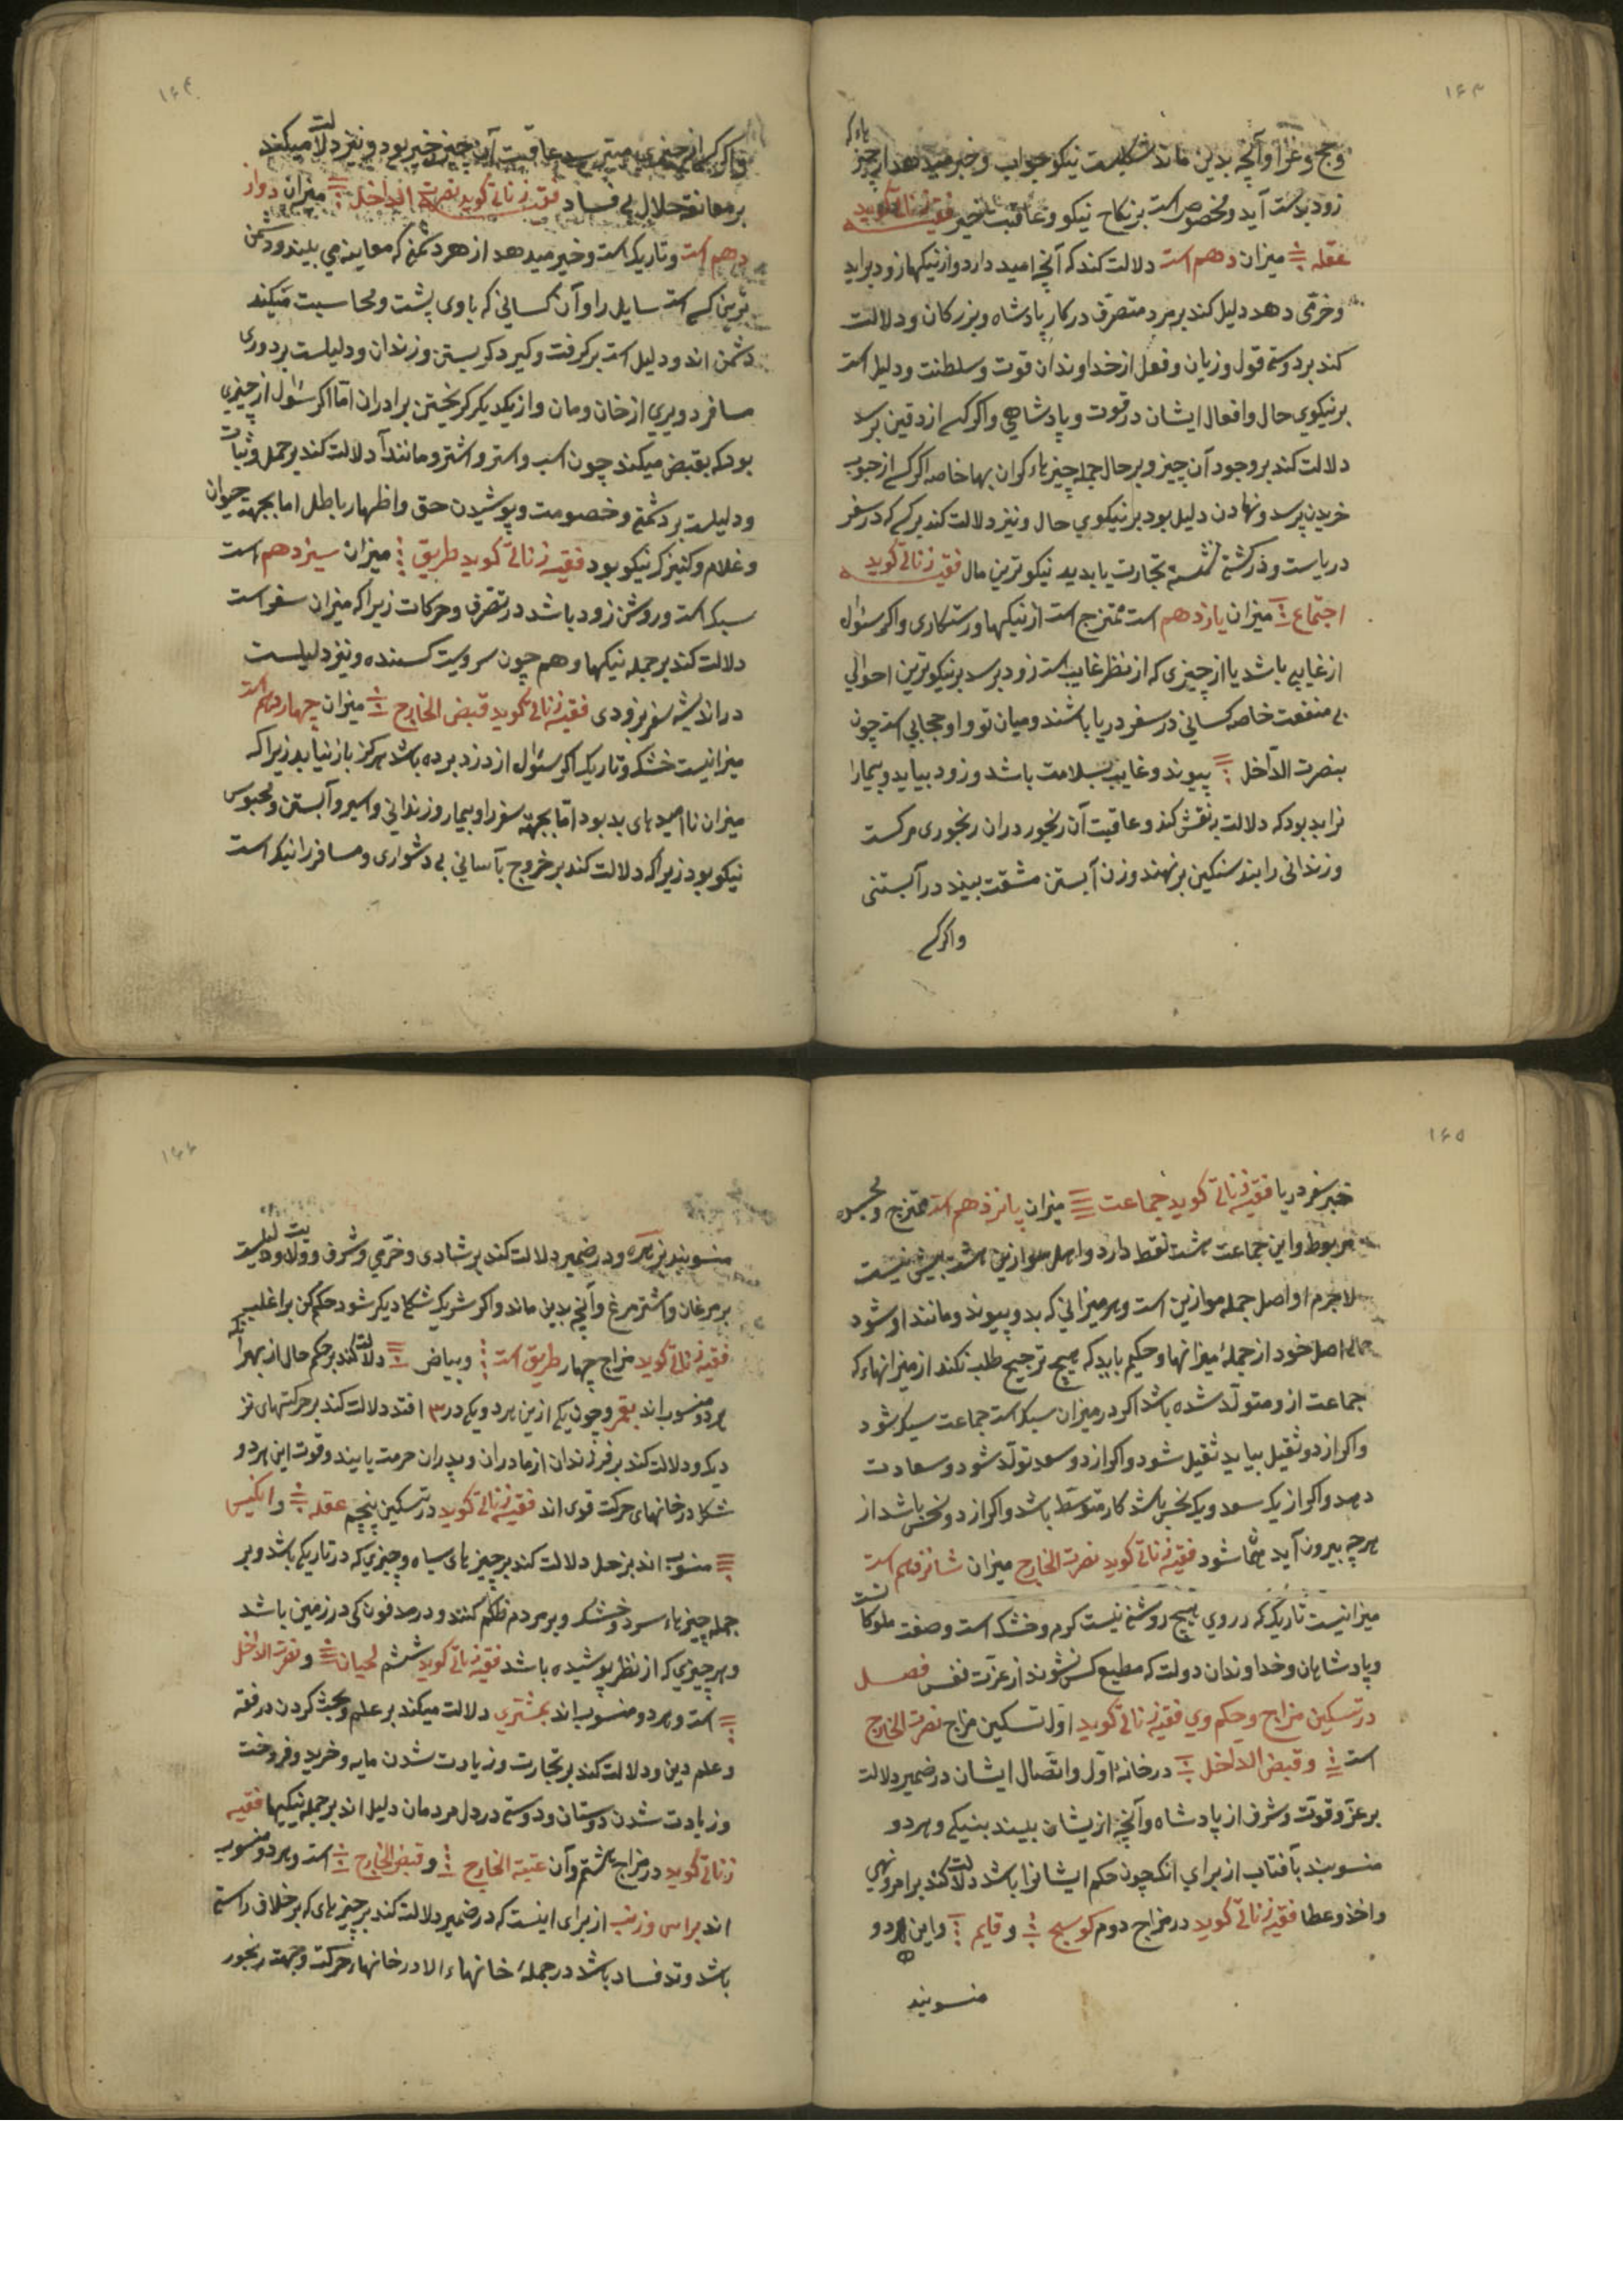 ۱۶۳
وحج وغزا وآنچه بدین ماند شکلیست نیکو جواب وخبر میدهد از چیز هاء که
زود بدست آید ومخصوص است بر نکاح نیکو وعاقبت خیر فقیه زناتی کوید
عقله میزان دهم است دلالت کند که آنچه امید دارد واز نیکیها زود براید
وخرمی دهد دلیل کند بر مرد متصرف در کار پادشاه وبزرکان ودلالت
کند بر دوستی قول وزبان وفعل از خداوندان قوت وسلطنت ودلیل است
بر نیکوی حال وافعال ایشان در قوت وپادشاهی واکر کسی از دفین پرسد
دلالت کند بر وجود آن چیز وبر حال جمله چیزهاء کران بها خاصه اکر کسی از جوب
خریدن پرسد ونهادن دلیل بود بر نیکوی حال ونیز دلالت کند بر کسی که در سفر
دریاست ودر کشتی نشسته تجارت یا بدید نیکوترین مال فقیه زناتی کوید
اجتماع میزان یازدهم است ممتزج است از نیکیها ورستکاری واکر سئوال
از غایبی باشد یا از چیزی که از نظر غایب است زود برسد بر نیکوترین احوالی
بی منفعت خاصه کسانی در سفر دریا باشند ومیان تو واو حجابی است چون
بنصرت الداخل پیوند وغایب بسلامت باشد وزود بیاید وبیمارا
نرا بد بود که دلالت بر نقش کند وعاقبت آن رنجور دران رنجوری مرکست
وزندانی را بند سنکین بر نهند وزن آبستن مشقت بیند در آبستنی
واکر کسی
۱۶۴
واکر کسی از چیزی میترسد عاقبت آن چیز خیر بود ونیز دلالت میکند
بر معانقه حلال بی فساد فقیه زناتی کوید نصرت الداخل میزان دواز
دهم است وتاریک است وخبر میدهد از هر دشمنی که معاینه می بیند ودشمن
ترین کسی است سایل را وآن کسانی که با وی پشت ومحاسبت میکند
دشمن اند ودلیل است بر کرفت وکیر دکریستن وزندان ودلیلست بر دوری
مسافر دویری از خان ومان واز یکدیکر کریختن برادران اما اکر سئوال از چیزی
بود که بقبض میکند چون اسب واستر واشتر ومانند آن دلالت کند بر حمل وثبات
ودلیلست بر دشمنی وخصومت وپوشیدن حق واظهار باطل اما بجهت حیوان
وغلام وکنیزک نیکو بود فقیه زناتی کوید طریق میزان سیزدهم است
سبک است وروشن زود باشد در تصرف وحرکات زیرا که میزان سفر است
دلالت کند بر جمله نیکیها وهم چون سرویست کسنده ونیز دلیلست
در اندیشه سفر بزودی فقیه زناتی کوید قبض الخارج میزان چهاردهم است
میزانیست خشک وتاریک اکر سئوال از دزد برده باشد هرکز باز نیابد زیرا که
میزان ناامیدهای بد بود اما بجهت سفر را وبیمار وزندانی واسیر وآبستن ومحبوس
نیکو بود زیرا که دلالت کند بر خروج بآسانی بی دشواری ومسافر را نیک است
۱۶۵
خبر سفر دریا فقیه زناتی کوید جماعت میزان پانزدهم است ممتزج ونحس
مربوط واین جماعت هشت نقط دارد واصل موازین هشت بیش نیست
لاجرم او اصل جمله موازین است وهر میزانی که بدو پیوند ومانند او شود
اصل خود از جمله میزانها وحکیم باید که هیچ ترجیح طلب نکند از میزانهاء که
جماعت ازو متولد شده باشد اکر در میزان سبک است جماعت سبک شود
واکر از دو ثقیل بیاید ثقیل شود واکر از دو سعد تولد شود وسعادت
دهد واکر از یک سعد ویک نحس باشد کار متوسط باشد واکر از دو نحس باشد از
هر چه بیرون آید شود فقیه زناتی کوید نصرت الخارج میزان شانزدهم است
میزانیست تاریک که در روی هیچ روشنی نیست کرم وخشک است وصفت ملوکا نست
وپادشاهان وخداوندان دولت که مطیع کس نشوند از عزت نفس فصل
در تسکین مزاج وحکم وی فقیه زناتی کوید اول تسکین مزاج نصرت الخارج
است وقبض الداخل در خانه اول واتصال ایشان در ضمیر دلالت
بر عز وقوت وشرف از پادشاه وآنچه از یشان بیند بنیکی وهر دو
منسوبند بآفتاب از برای انکه چون حکم ایشانرا باشد دلالت کند بر امر ونهی
واخذ وعطا فقیه زناتی کوید در مزاج دوم کوسج وقایم واین هر دو
منسوبند
۱۶۶
منسوبند بزهره ودر ضمیر دلالت کند بر شادی وخرمی وشرف وولایت ودلیلست
بر مرغان واشتر مرغ وآنچه بدین ماند واکر شریک شکل دیکر شود حکم کن بر اغلب
فقیه زناتی کوید مزاج چهار طریق است وبیاض دلالت کند بر حکم حال از بهر آنکه
هر دو منسوب اند بقمر وچون یکی از ین هر دو یکی در ۳ افتد دلالت کند بر حرکتهای نز
دیک ودلالت کند بر فرزندان از مادران وپدران حرمت یابند وقوت این هر دو
شکل در خانهای حرکت قوی اند فقیه زناتی کوید در تسکین پنجم عقله وانکیس
منسوب اند بزحل دلالت کند بر چیزهای سیاه وچیزی که در تاریکی باشد وبر
جمله چیزهاء سرد وخشک وبر مردم ظلم کنند ودر مدفون کی در زمین باشد
وهر چیزی که از نظر پوشیده باشد فقیه زناتی کوید ششم لحیان ونصرت الداخل
است وهر دو منسوب اند بمشتری دلالت میکند بر علم وبحث کردن در فقه
وعلم دین ودلالت کند بر تجارت وزیادت شدن مایه وخرید وفروخت
وزیادت شدن دوستان ودوستی در دل مردمان دلیل اند بر جمله نیکیها فقیه
زناتی کوید در مزاج هشتم وآن عتبة الخارج وقبض الخارج است وهر دو منسوب
اند براس وزنب از برای اینست که در ضمیر دلالت کند بر چیزهای که بر خلاف راستی
باشد وتد فساد باشد در جمله خانهاء الا در خانهاء حرکت وجهت رنجور